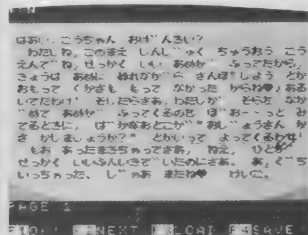 はあい、こうちゃん おげんきい?
わたしね、このまえ しんじゅく ちゅうおう こう
えんでね、せっかく いい あめが ふってたから、
きょうは あめに ぬれながら さんぽしよう とか
おもって (かさも もって なかった からね♥) ある
いてたわけ! そしたらさあ、わたしが そらを なが
めて あめが ふってくるのを ぼおーっと み
てるときに、ばかなおとこが "おじょうさん か
さ かしましょうか? " とかいって よってくるわけ!
もお あったまきちゃってさあ、ねえ、ひどい
せっかく いいふんいきで いたのにさあ、あ、ぐち
いっちゃった、じゃあ またね♥ けいこ。
PAGE 1
NEXT LOAD SAVE